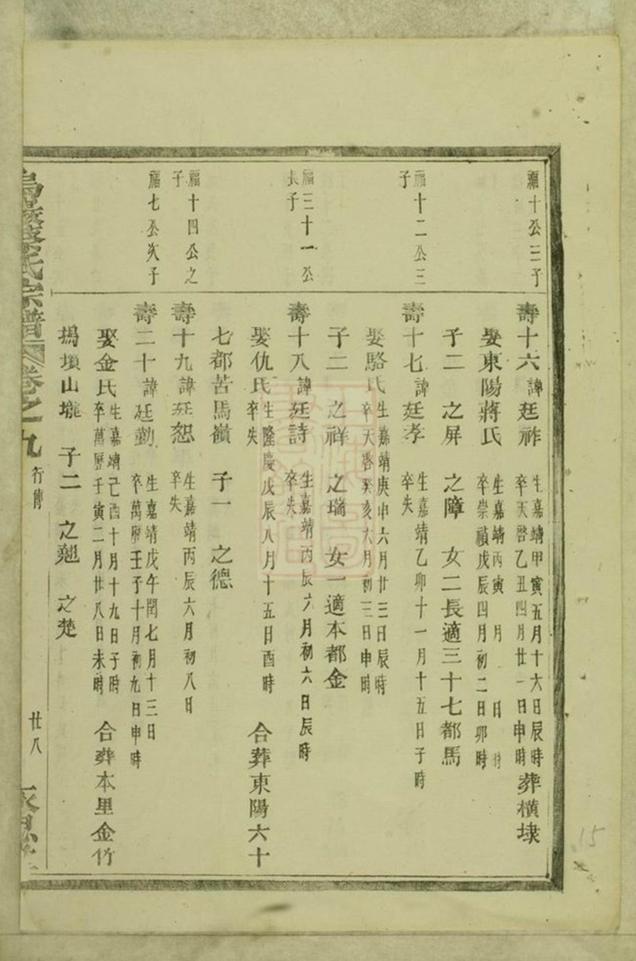 福十公三子
壽十六 諱廷祚 生嘉靖甲寅五月十六日辰時 卒天啓乙丑四月廿一日申時 葬橫埭
娶東陽蔣氏 生嘉靖丙寅 月 日 時 卒崇禎戊辰四月初二日卯時
子二 之屏 之障 女二長適三十七都馬
福十二公三子
壽十七 諱廷孝 生嘉靖乙卯十一月十五日子時 卒失
娶駱氏 生嘉靖庚申六月廿三日辰時 卒天啓癸亥六月初三日申時
子二 之祥 之瑞 女一適本都金
福三十一公長子
壽十八 諱廷詩 生嘉靖丙辰六月初六日辰時 卒失
娶仇氏 生隆慶戊辰八月十五日酉時 卒失 合葬東陽六十
七都苦馬嶺 子一 之德
福十四公之子
壽十九 諱廷恕 生嘉靖丙辰六月初八日 卒失
福七公次子
壽二十 諱廷勤 生嘉靖戊午閏七月十三日 卒萬曆壬子十月初九日申時
娶金氏 生嘉靖己酉十月十九日子時 卒萬曆壬寅二月廿八日未時 合葬本里金竹
塢墳山壠 子二 之翹 之楚
氏宗譜 卷之九 行傳 廿八
15